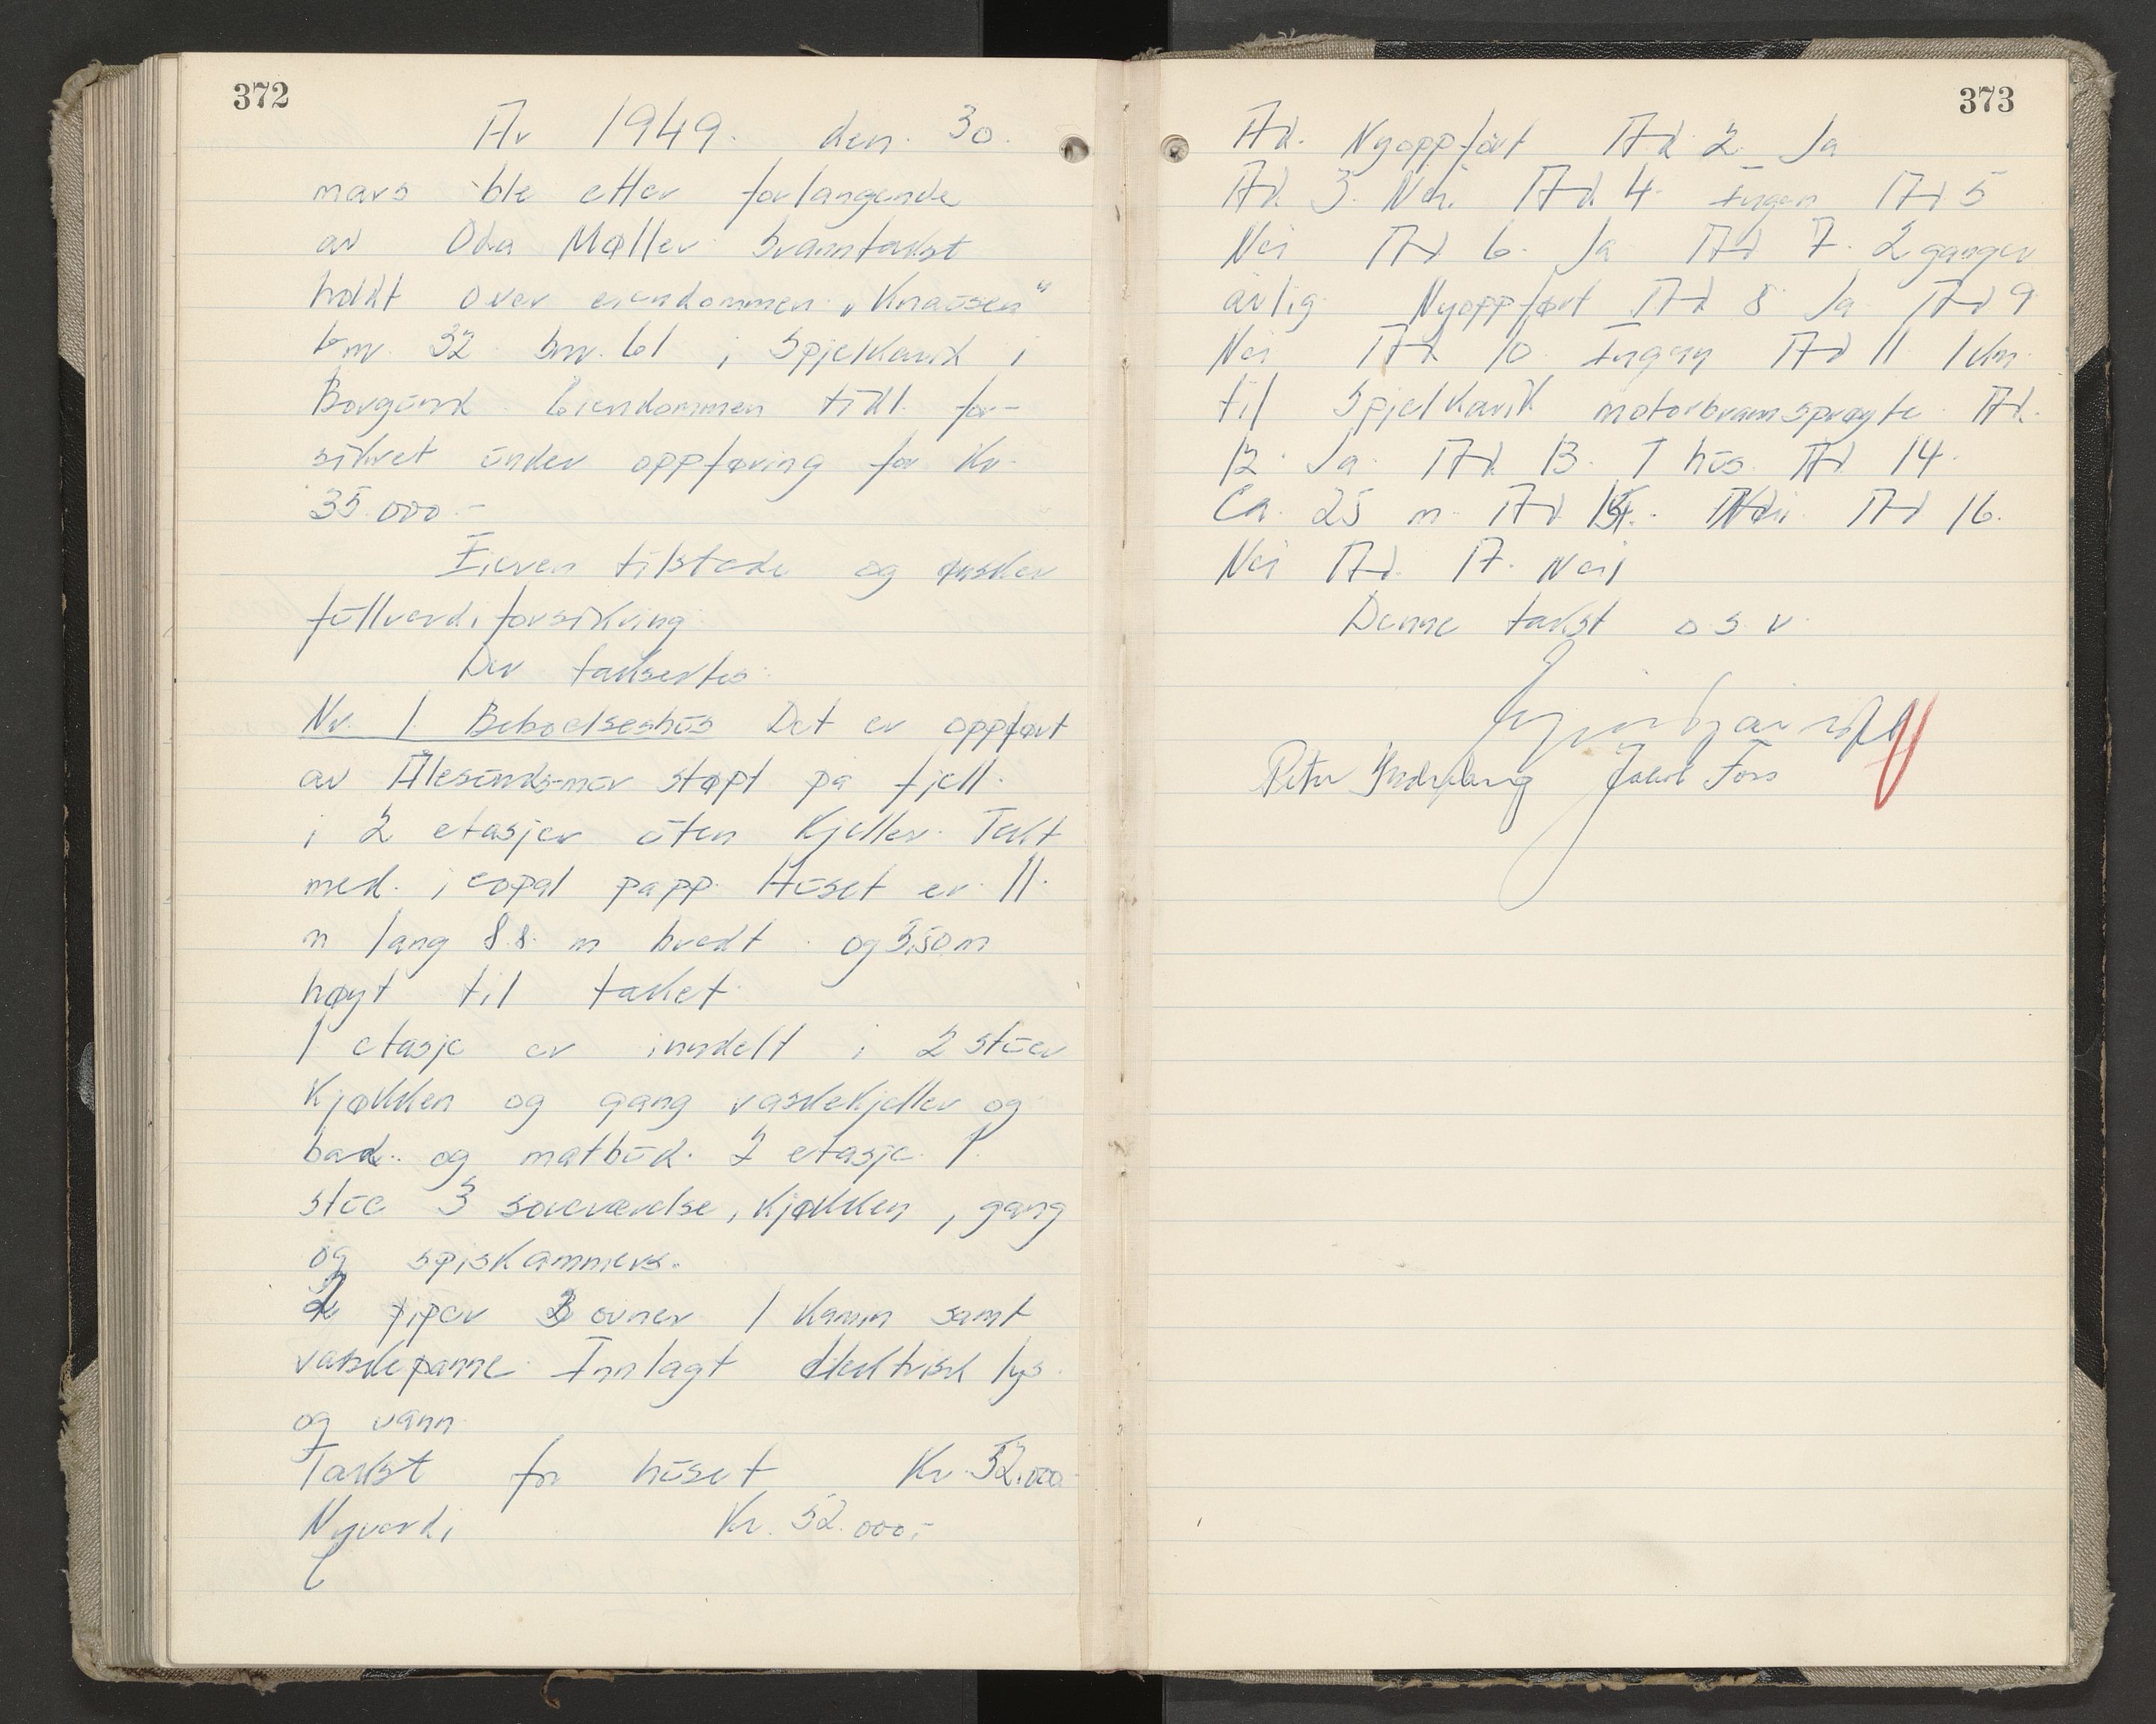 372
År 1949. den. 30.
mars ble etter forlangende
av Oda Møller branntakst
holdt over eiendommen „Knausen"
bnr. 61 i Spjelkavik i
Borgund. Eiendommen tidl. for-
sikret under oppføring for Kr.
35.000.-
Eieren tilstede og ønsker
fullverdiforsikring.
Der taksertes:
Nr. 1. Beboelseshus Det er oppført
av Ålesunds-mur støpt på fjell.
i 2 etasjer uten Kjeller. Tekt
med. icopal papp. Huset er. 11.
m lang 8.8. m bredt. og 5,50 m
høyt til taket.
1 etasje er inndelt i 2 stuer
Kjøkken og gang vaskekjeller og
bad.. og matbod. 2 etasje. 1.
stue 3 soveværelse, Kjøkken, gang
og spiskammers.
2 piper 3 ovner 1 Kamin samt
vaskepanne. Innlagt elektrisk lys.
og vann.
Takst for huset Kr. 52.000
Nyverdi Kr. 52.000,-
373
Ad. Nyoppført Ad 2. Ja
Ad. 3. Nei. Ad. 4. Ingen Ad 5
Nei Ad 6. Ja Ad 7. 2 ganger
årlig. Nyoppført Ad 8 Ja Ad 9
Nei Ad 10. Ingen Ad 11 1 Km.
til Spjelkavik motorbrannsprøyte. Ad.
12. Ja. Ad. 13. 1 hus. Ad. 14.
Ca. 25 m. Ad 15. Nei. Ad 16.
Nei Ad. 17. Nei
Denne takst o.s.v.
Peter Jakob Foss